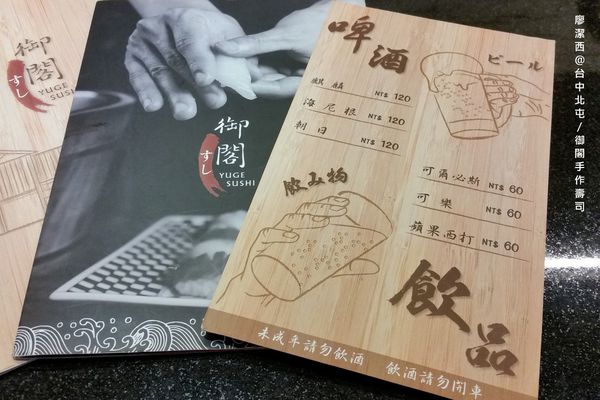 御
閣
すし
YUGE
SUSHI
御
閣
すし
YUGE
SUSHI
啤酒
麒麟 NT$ 120
海尼根 NT$ 120
朝日 NT$ 120
ビール
飲み物
可爾必斯 NT$ 60
可樂 NT$ 60
蘋果西打 NT$ 60
飲品
未成年請勿飲酒 飲酒請勿開車
廖潔西@台中北屯/御閣手作壽司